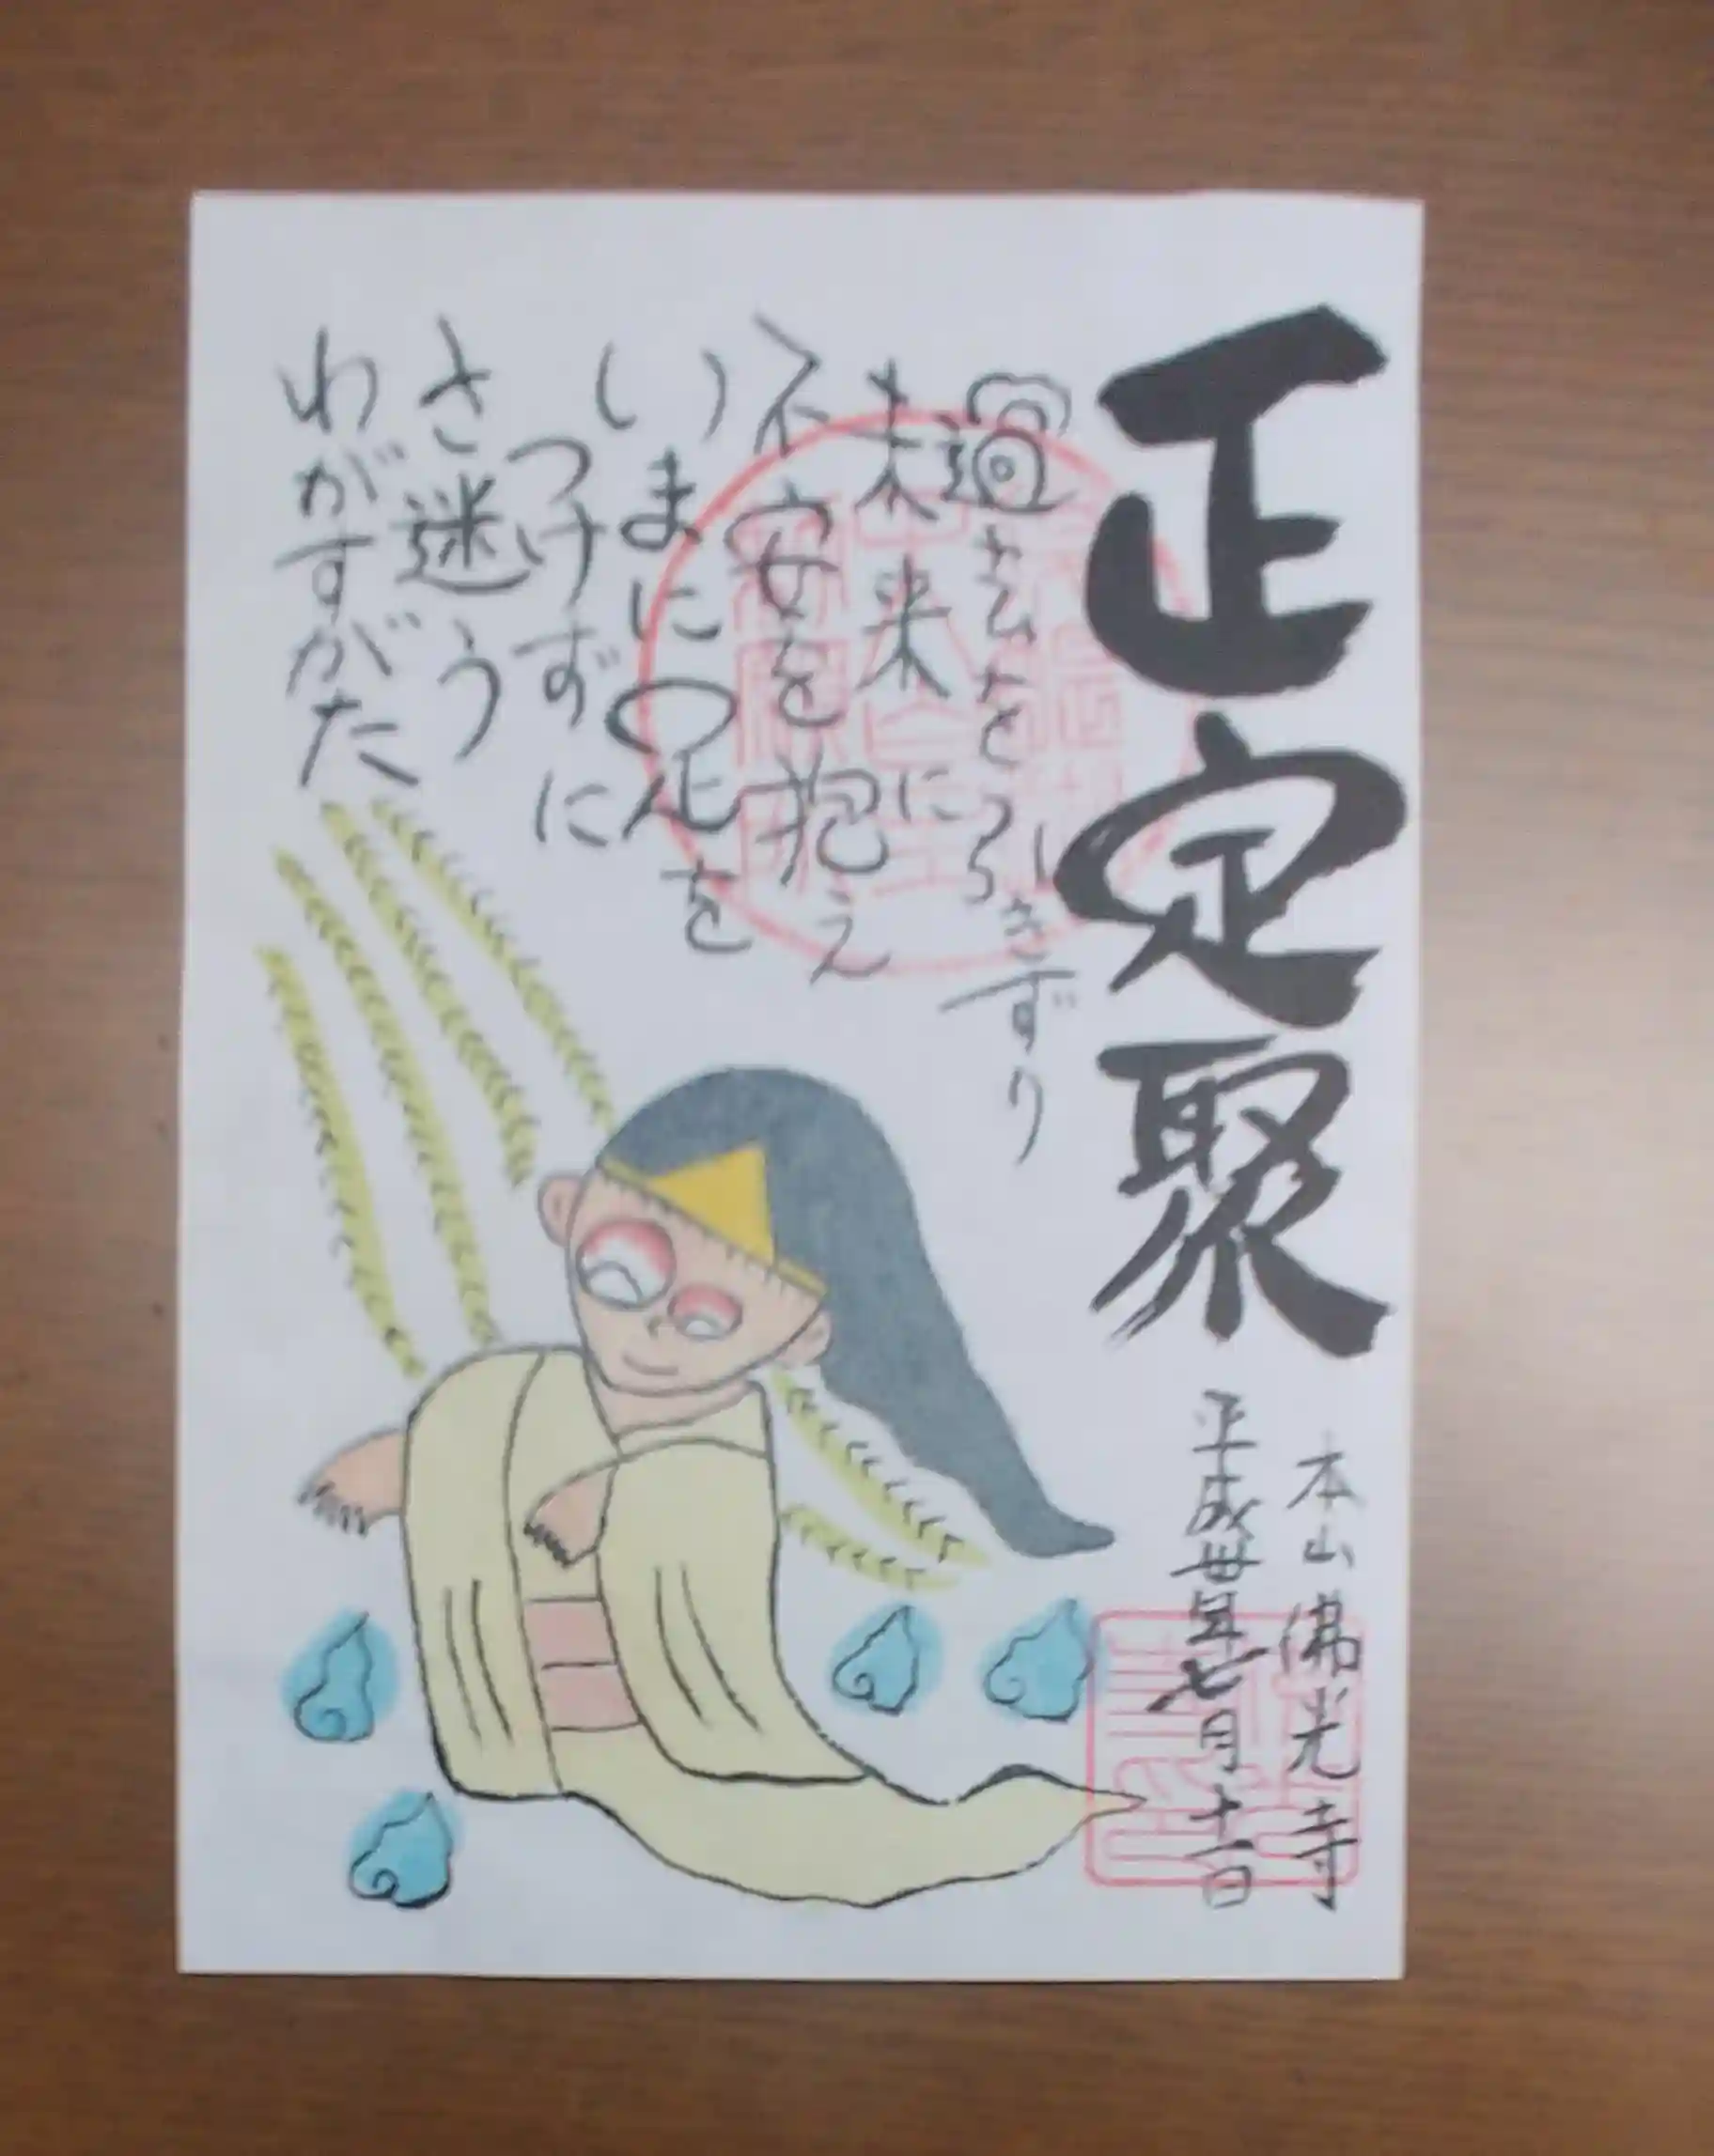 正定聚
本山佛光寺
平成丗年七月十一日
過去をひきずり
未来に
不安を抱え
いまに足を
つけずに
さ迷う
わがすがた